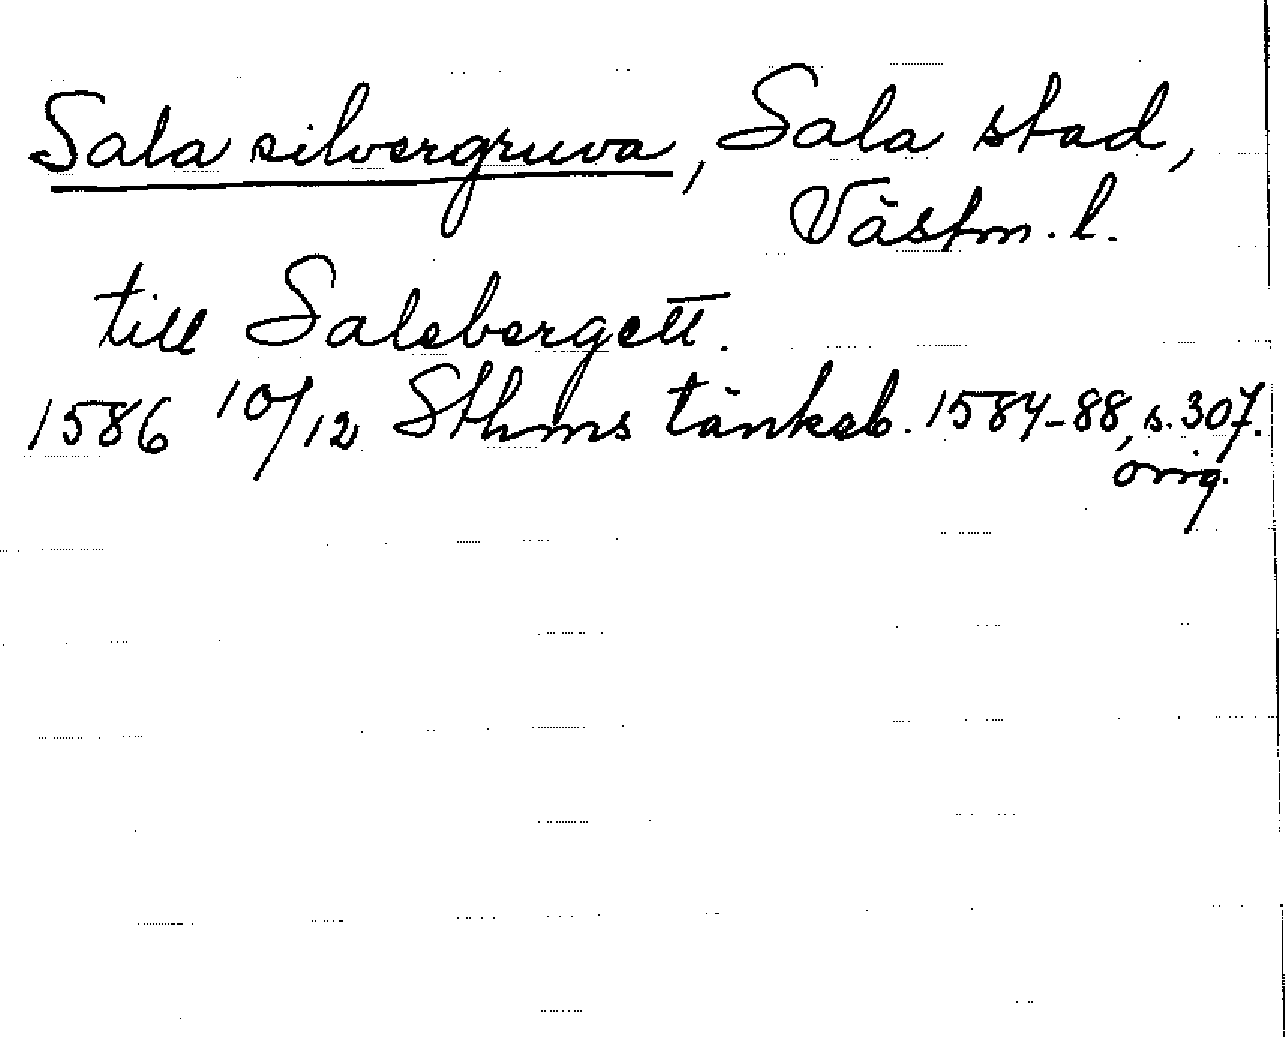 Sala silvergruva, Sala stad,
Västm. l.
till Salebergett.
1586 10/12 Sthms tänkeb. 1584-88, s. 307.
orig.